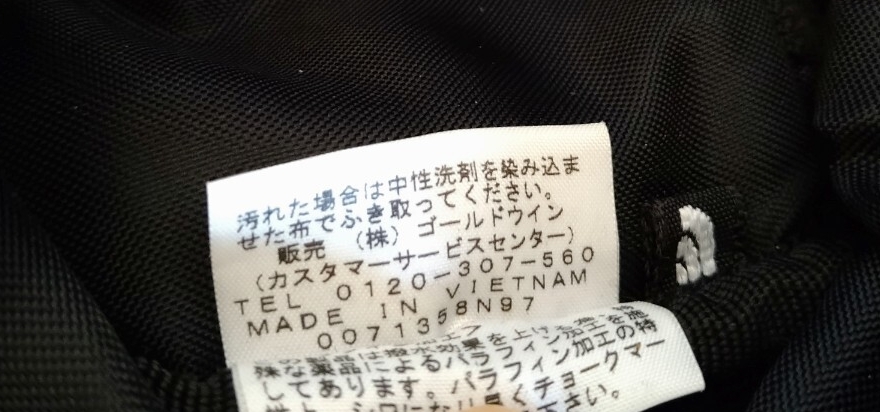 汚れた場合は中性洗剤を染み込ま
せた布でふき取ってください。
販売 (株) ゴールドウイン
(カスタマーサービスセンター)
TEL 0120-307-560
MADE IN VIETNAM
0071358N97
は撥水効果を上げる為、特
殊な薬品によるパラフィン加工を施
してあります。パラフィン加工の特
チョークマー
下さい。